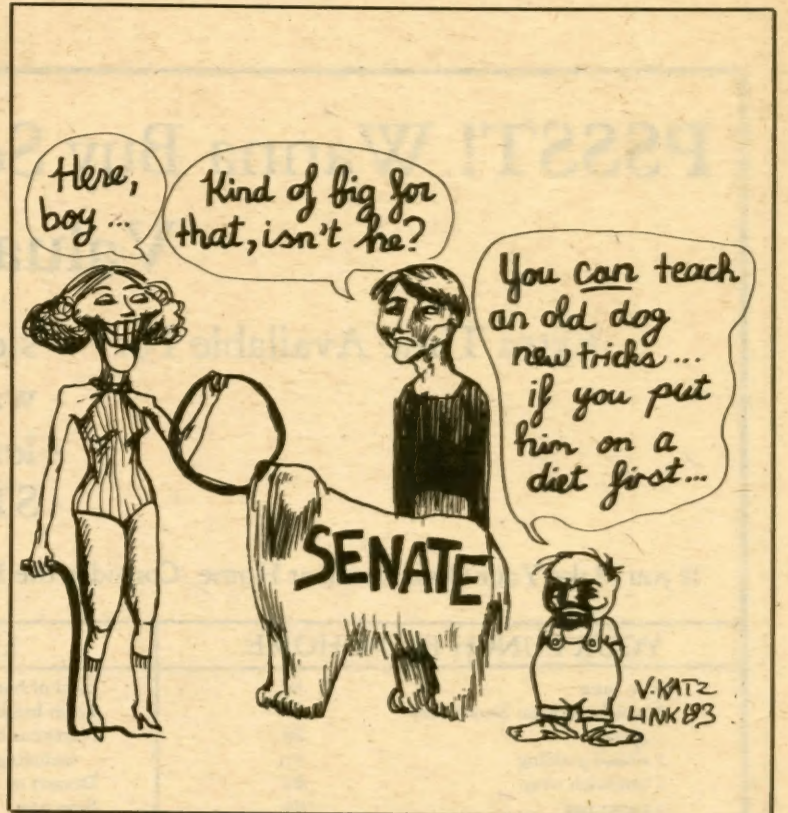 Here,
boy...
Kind of big for
that, isn't he?
You can teach
an old dog
new tricks...
if you put
him on a
diet first...
SENATE
V. KATZ
LINK '83